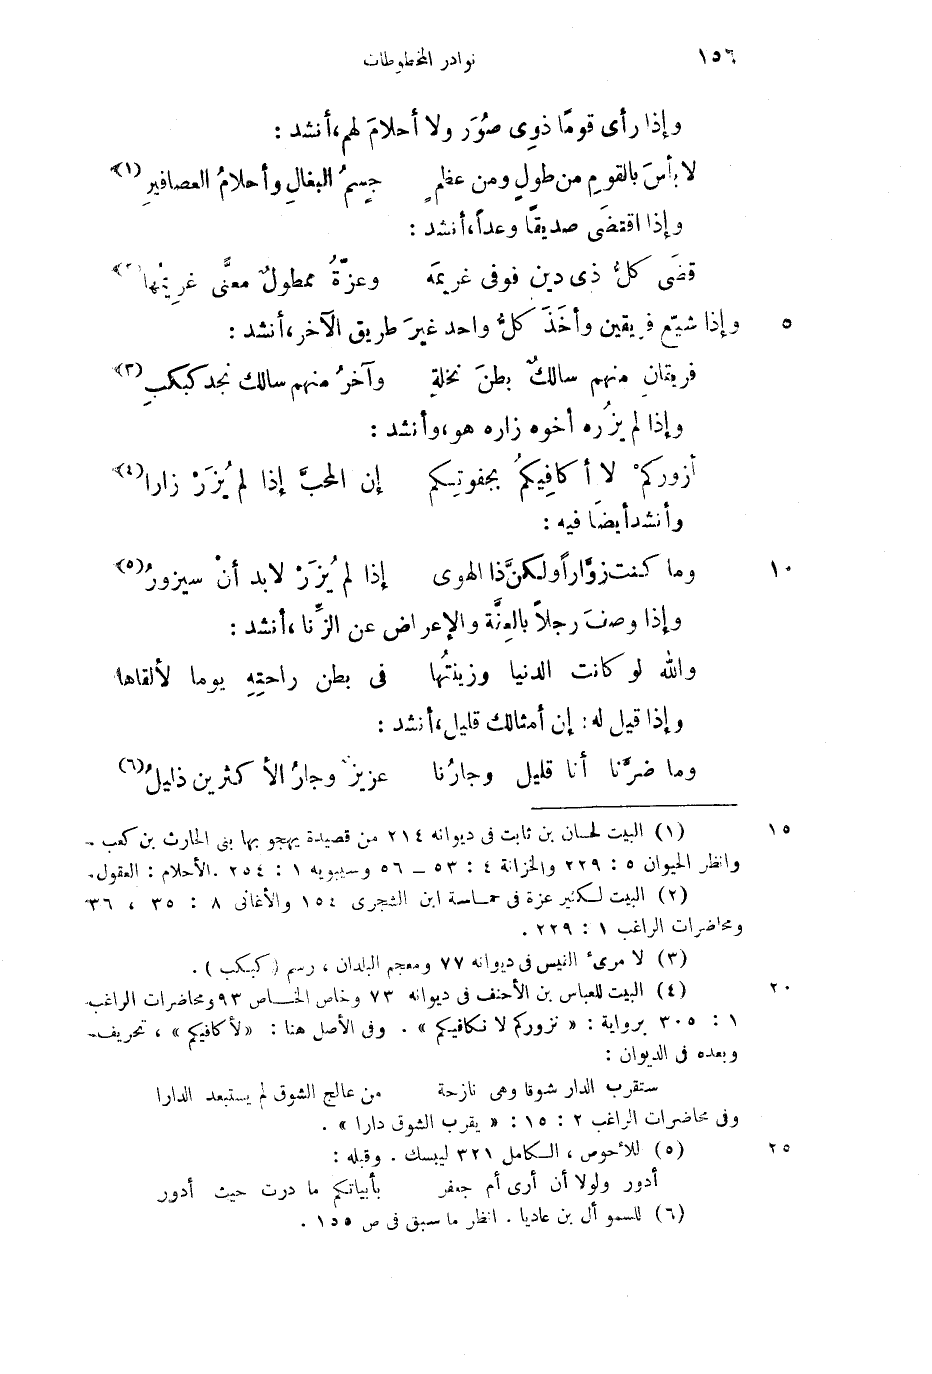 ١٥٦ نوادر المخطوطات
وإذا رأى قومًا ذوِى صُوَر ولا أحلامَ لهم، أنشد :
لا بأسَ بالقومِ من طولٍ ومن عظمٍ جِسمُ البغالِ وأحلامُ العصافيرِ (١)
وإذا اقتضَى صديقًا وعداً، أنشد :
قضَى كلُّ ذى دين فوفى غريمَه وعزّةُ ممطولٌ معنًّى غريمُها (٢)
٥ وإذا شيّع فريقين وأخَذَ كلُّ واحد غيرَ طريق الآخر، أنشد :
فريقانِ منهم سالكٌ بطنَ نخلةٍ وآخرُ منهم سالك نجد كبكبِ (٣)
وإذا لم يزُره أخوه زاره هو، وأنشد :
أزوركمْ لا أكافِيكمُ بجفوتِكم إن المحبَّ إذا لم يُزَرْ زارا (٤)
وأنشد أيضًا فيه :
١٠ وما كنت زوَّاراً ولكنَّ ذا الهوى إذا لم يُزَرْ لابد أنْ سيزورُ (٥)
وإذا وصفَ رجلاً بالعِنَّة والإعراض عن الزِّنا، أنشد :
والله لو كانت الدنيا وزينتُها فى بطن راحتِهِ يوما لألقاها
وإذا قيل له: إن أمثالك قليل، أنشد :
وما ضرَّنا أنا قليل وجارُنا عزيزٌ وجارُ الأكثرين ذليلُ (٦)
١٥ (١) البيت لحسان بن ثابت فى ديوانه ٢١٤ من قصيدة يهجو بها بنى الحارث بن كعب.
وانظر الحيوان ٥ : ٢٢٩ والخزانة ٤ : ٥٣ – ٥٦ وسيبويه ١ : ٢٥٤ . الأحلام : العقول.
(٢) البيت لكثير عزة فى حماسة ابن الشجرى ١٥٤ والأغانى ٨ : ٣٥ ، ٣٦
ومحاضرات الراغب ١ : ٢٢٩ .
(٣) لامرىء القيس فى ديوانه ٧٧ ومعجم البلدان ، رسم ( كبكب ) .
٢٠ (٤) البيت للعباس بن الأحنف فى ديوانه ٧٣ وخاص الخاص ٩٣ ومحاضرات الراغب
١ : ٣٠٥ برواية : « نزوركم لا نكافيكم » . وفى الأصل هنا : « لأكافيكم » ، تحريف.
وبعده فى الديوان :
ستقرب الدار شوقا وهى نازحة من عالج الشوق لم يستبعد الدارا
وفى محاضرات الراغب ٢ : ١٥ : « يقرب الشوق دارا » .
٢٥ (٥) للأحوص ، الكامل ٣٢١ ليبسك . وقبله :
أدور ولولا أن أرى أم جعفر بأبياتكم ما درت حيث أدور
(٦) للسموأل بن عاديا . انظر ما سبق فى ص ١٥٥ .